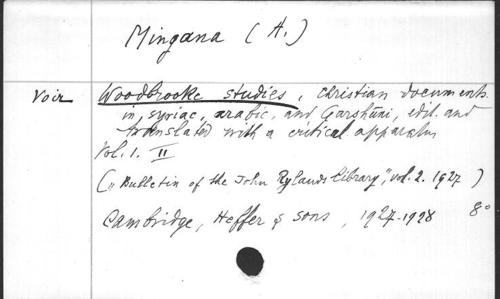 Mingana (A.)
Voir Woodbrooke studies, christian documents
in, syriac, arabic, and Garshūni, edit. and
translated with a critical apparatus
Vol. 1. II
(„Bulletin of the John Rylands Library", vol. 2. 1927)
Cambridge, Heffer & sons, 1927-1928 8°